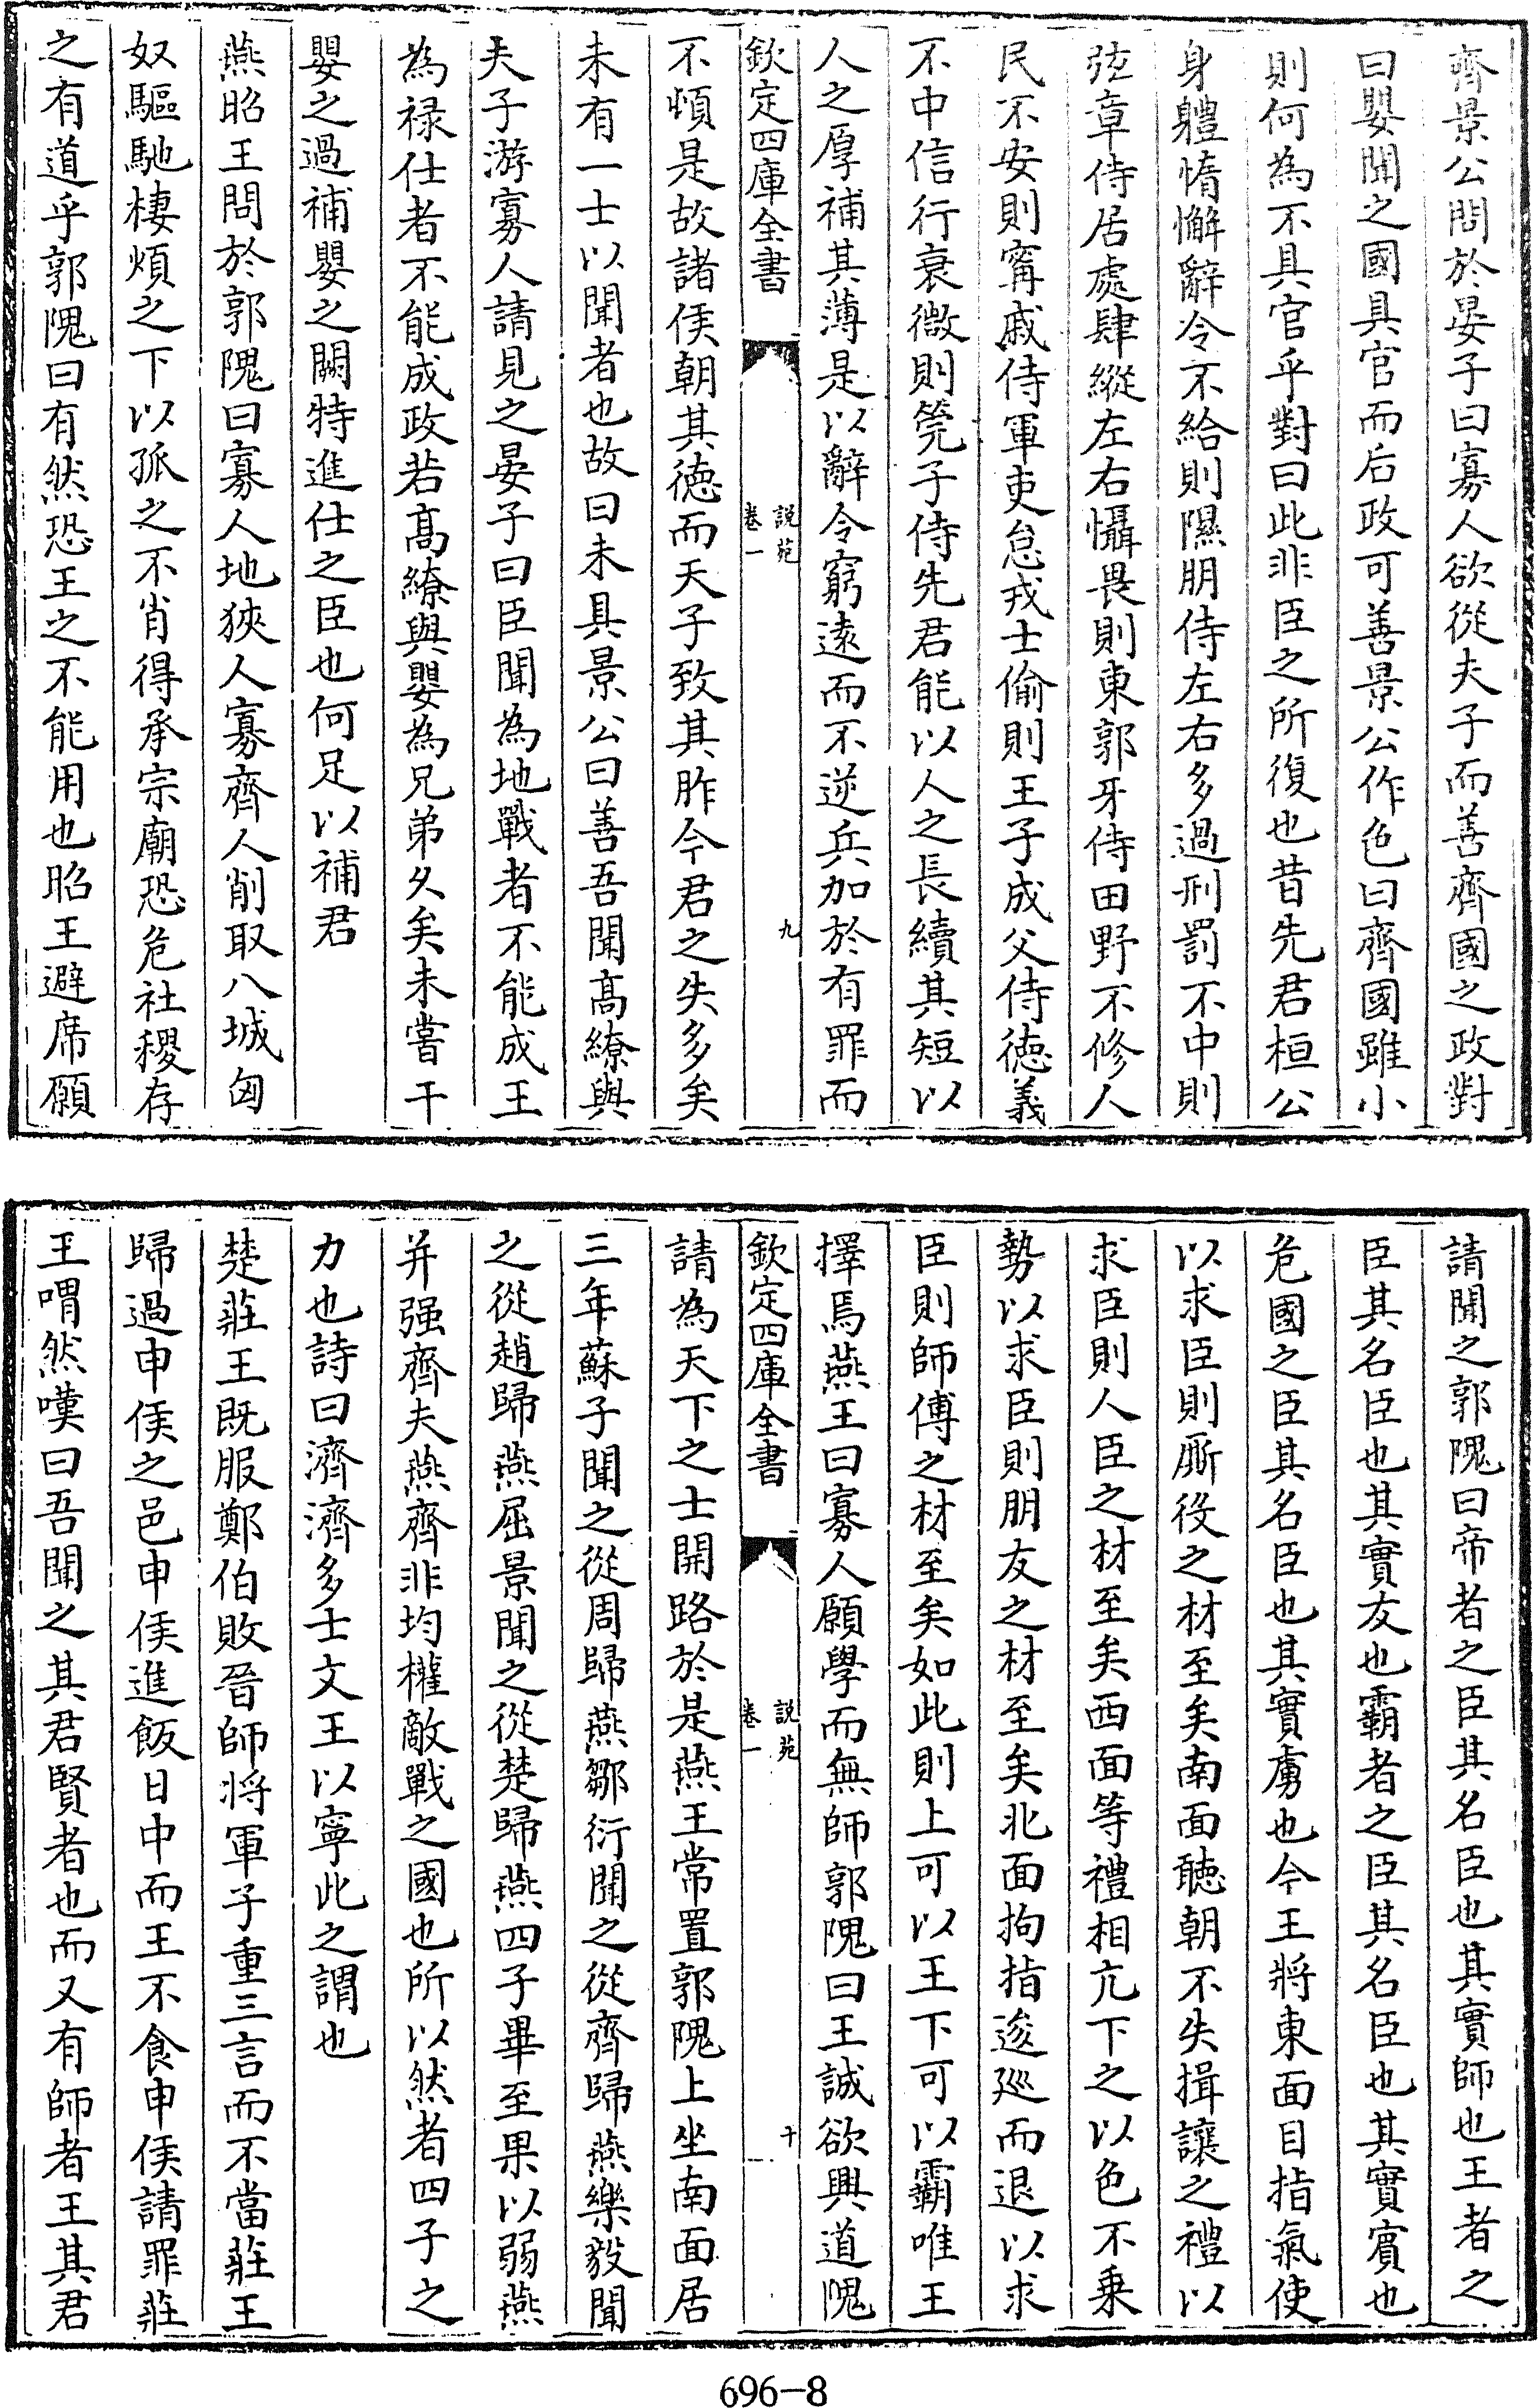 齊景公問於晏子曰寡人欲從夫子而善齊國之政對
曰嬰聞之國具官而后政可善景公作色曰齊國雖小
則何為不具官乎對曰此非臣之所復也昔先君桓公
身軆惰懈辭令不給則隰朋侍左右多過刑罰不中則
弦章侍居處肆縱左右懾畏則東郭牙侍田野不修人
民不安則甯戚侍軍吏怠戎士偷則王子成父侍徳義
不中信行衰微則筦子侍先君能以人之長續其短以
人之厚補其薄是以辭令窮逺而不逆兵加於有罪而
欽定四庫全書
說苑
卷一
九
不頓是故諸侯朝其徳而天子致其胙今君之失多矣
未有一士以聞者也故曰未具景公曰善吾聞髙繚與
夫子游寡人請見之晏子曰臣聞為地戰者不能成王
為禄仕者不能成政若髙繚與嬰為兄弟久矣未嘗干
嬰之過補嬰之闕特進仕之臣也何足以補君
燕昭王問於郭隗曰寡人地狹人寡齊人削取八城匈
奴驅馳樓煩之下以孤之不肖得承宗廟恐危社稷存
之有道乎郭隗曰有然恐王之不能用也昭王避席願
請聞之郭隗曰帝者之臣其名臣也其實師也王者之
臣其名臣也其實友也霸者之臣其名臣也其實賓也
危國之臣其名臣也其實虜也今王將東面目指氣使
以求臣則厮役之材至矣南面聽朝不失揖讓之禮以
求臣則人臣之材至矣西面等禮相亢下之以色不乗
勢以求臣則朋友之材至矣北面拘指逡廵而退以求
臣則師傅之材至矣如此則上可以王下可以霸唯王
擇焉燕王曰寡人願學而無師郭隗曰王誠欲興道隗
欽定四庫全書
說苑
卷一
十
請為天下之士開路於是燕王常置郭隗上坐南面居
三年蘇子聞之從周歸燕鄒衍聞之從齊歸燕樂毅聞
之從趙歸燕屈景聞之從楚歸燕四子畢至果以弱燕
并强齊夫燕齊非均權敵戰之國也所以然者四子之
力也詩曰濟濟多士文王以寧此之謂也
楚莊王既服鄭伯敗晉師將軍子重三言而不當莊王
歸過申侯之邑申侯進飯日中而王不食申侯請罪莊
王喟然嘆曰吾聞之其君賢者也而又有師者王其君
696-8